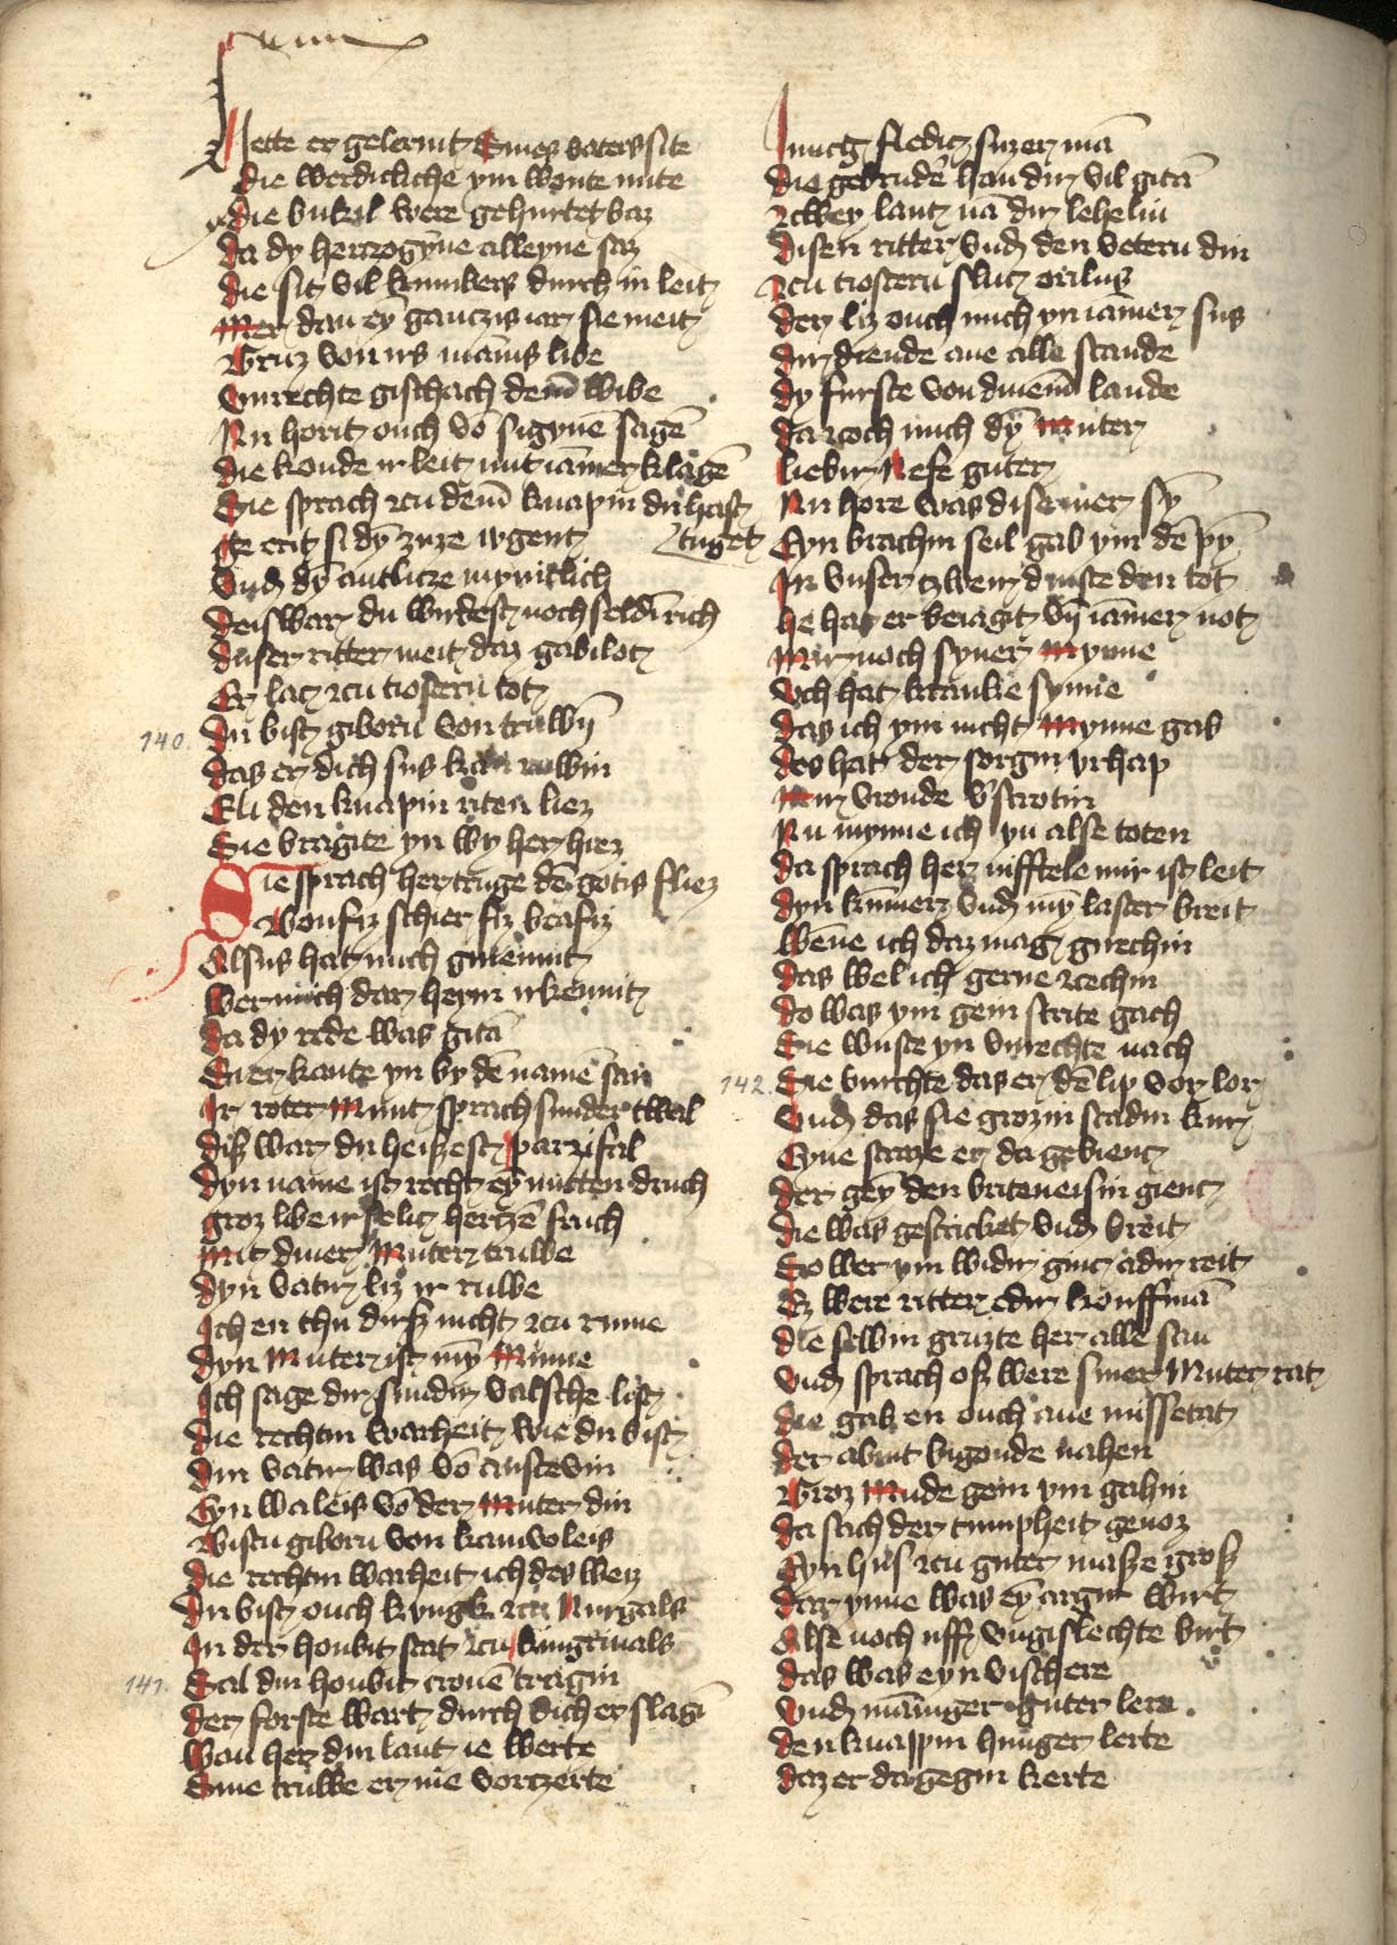 Hette er gelernit Sines vaters site
die werdicliche ym wonte mite
die bukil were gehurtet baz
da dy hertzogyne alleyne saz
die sit vil kummers durch in leit
Mer dan ey gancziz iar sie meit
Gruz von irs mannis libe
Vnrechte gischach dem wibe
Nu horit ouch vō sigynē sagē
die konde ir leit mit iāmer klagē
Sie sprach zcu dem knapin du hast
tuget
Ge erit si dȳ zuze iogent
Vnd dȳ antlicze mynniclich
deiswar du wirdest noch seldī rich
diser ritter meit daz gabilot
Er lac zcu tiosteru tot
140. du bist giborn von truwī
das er dich sus kan ruwin
Eli den knapin riten liez
Sie vragite yn wy her hiez
Sie sprach her truge dē gotis fliez
Bonfiz schier fiz beafiz
Alsus hat mich ginennit
Wer mich dar heym irkennit
da dy rede was gitā
Sie erkante yn by dē namē san
Ir roter Munt sprach sunder twal
diß war du heißest parzifal
dyn name ist recht eȳ mitten druch
groz libe ir selic hertzē fruch
Mit diner Muter truwe
dyn vatir liz ir ruwe
Ich en thu dirß nicht zcu rume
dyn Muter ist mȳ Mume
Ich sage dir sundir valsche list
die rechtin warheit wie du bist
din vatir was vō anscevin
Eyn waleis vō der Muter din
Bistu giborn von kanvoleis
die rechtin warheit ich des weiz
du bist ouch kyngk zcu Nurgals
In der houbit stat zcu kingrivals
141. Sal din houbit cronē tragin
der forste wart durch dich er slagī
Wan her din lant ie werte
Sine truwe er nie vorczerte
Iuncg fledic suzer mā
die gebrudē han dir vil gitā
zcwey lant nā dir lehelin
disen ritter vnd den vetern din
zcu tiosteru sluc orilus
der liz ouch mich yn iāmer sus
dir diende ane alle scande
dy furste von dinem lande
da zcoch mich dȳ Muter
liebir Nefe guter
Nu hore was dise mer sȳ
Eyn brachin seil gab ym dē pȳ
In vnser czweir dinste den tot
he hat er beiagit vn iāmer not
Mir noch syner Mynne
Och hat kranke synne
das ich ym nicht Mynne gab
des hat der sorgin vrhap
Mir vronde v'scrotin
Nu mynne ich yn alse toten
da sprach her nifftele mir ist leit
dyn kūmer vnd mȳ laster breit
Wēne ich daz mag girechin
das wel ich gerne zcechin
do was ym gein strite gach
Sie wiste yn vnrechte nach
142. Sie vurchte das er dē lip vor lor
Vnd das sie grozin scadin kur
Eyne straze er da gevienc
der gēy den briteneisin gienc
die was gestricket vnd breit
So wer ym widir ginc adir reit
Ez were ritter edir kouffmā
die selbin gruzte her alle san
Vnd sprach oß were siner Muter rat
die gab en ouch ane missetat
der abint bigonde nahen
Groz Mude gein ym gahin
da sach der tumpheit genoz
Eyn hus zcu guter masze groß
dar ynne was eȳ argir wirt
Alse noch uff vngislechte birt
das was eyn vischere
Vnd manniger guter lere
den knappin hunger lerte
daz er dar gegin kerte